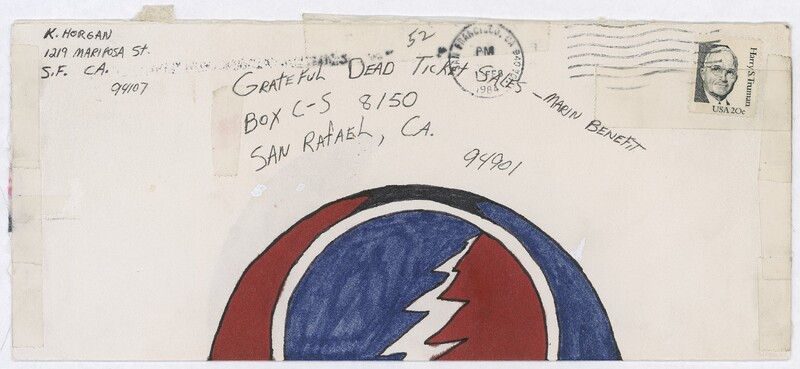 K. HORGAN
1219 MARIPOSA St.
S.F. CA.
94107
52
SAN FRANCISCO, CA
PM
FEB
1984
GRATEFUL DEAD TICKET SALES - MARIN BENEFIT
BOX C-S 8150
SAN RAFAEL, CA.
94901
Harry S. Truman
USA 20c